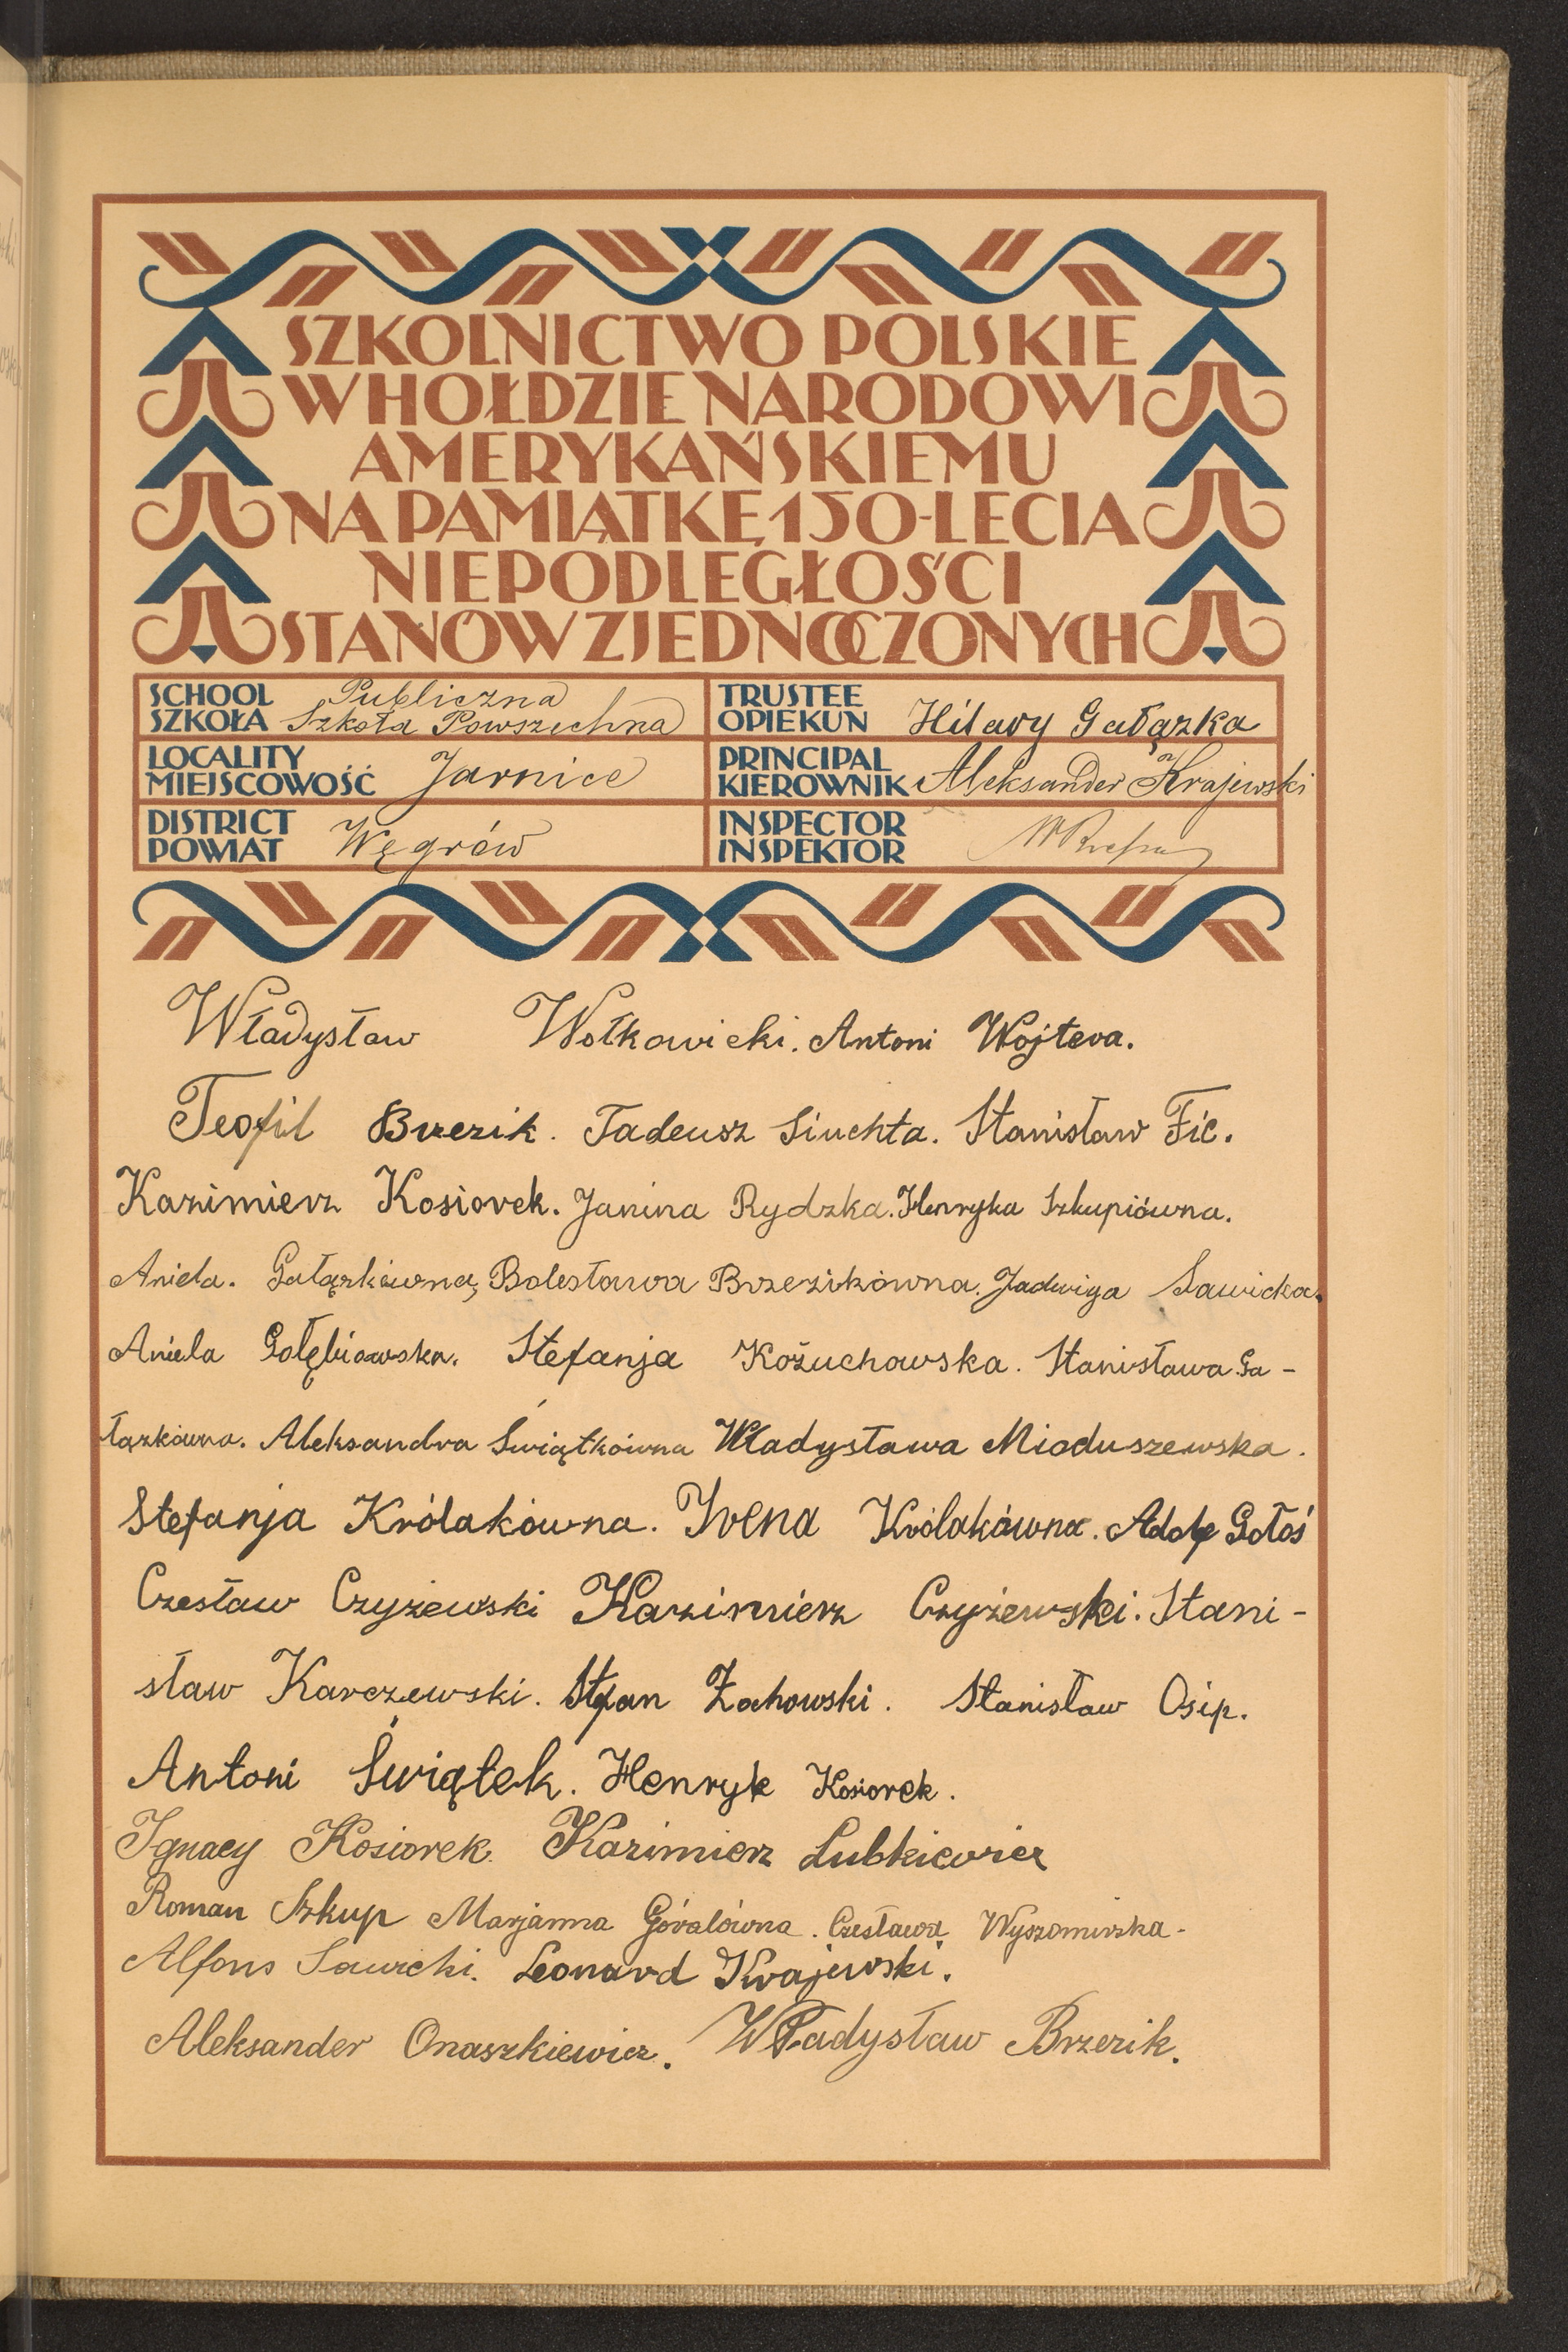 SZKOLNICTWO POLSKIE
W HOŁDZIE NARODOWI
AMERYKAŃSKIEMU
NA PAMIĄTKĘ 150-LECIA
NIEPODLEGŁOŚCI
STANÓW ZJEDNOCZONYCH
SCHOOL
SZKOŁA
Publiczna
Szkoła Powszechna
TRUSTEE
OPIEKUN
Hilary Gałązka
LOCALITY
MIEJSCOWOŚĆ
Jarnice
PRINCIPAL
KIEROWNIK
Aleksander Krajewski
DISTRICT
POWIAT
Węgrów
INSPECTOR
INSPEKTOR
Władysław Wołkowicki. Antoni Wojtera.
Teofil Brzezik. Tadeusz Siuchta. Stanisław Fic.
Kazimierz Kosiorek. Janina Rydzka. Henryka Szkupiówna.
Aniela. Gałązkówna, Bolesława Brzezikówna. Jadwiga Sawicka.
Aniela Gołębiowska. Stefanja Kożuchowska. Stanisława Ga-
łązkówna. Aleksandra Świątkówna Władysława Mioduszewska.
Stefanja Królakówna. Irena Królakówna. Adolf Gołoś
Czesław Czyżewski Kazimierz Czyżewski. Stani-
sław Karczewski. Stefan Żochowski. Stanisław Osip.
Antoni Świątek. Henryk Kosiorek.
Ignacy Kosiorek. Kazimierz Lubkiewicz
Roman Szkup Marjanna Góralówna. Czesława Wyszomirska-
Alfons Sawicki. Leonard Krajewski.
Aleksander Onaszkiewicz. Władysław Brzezik.